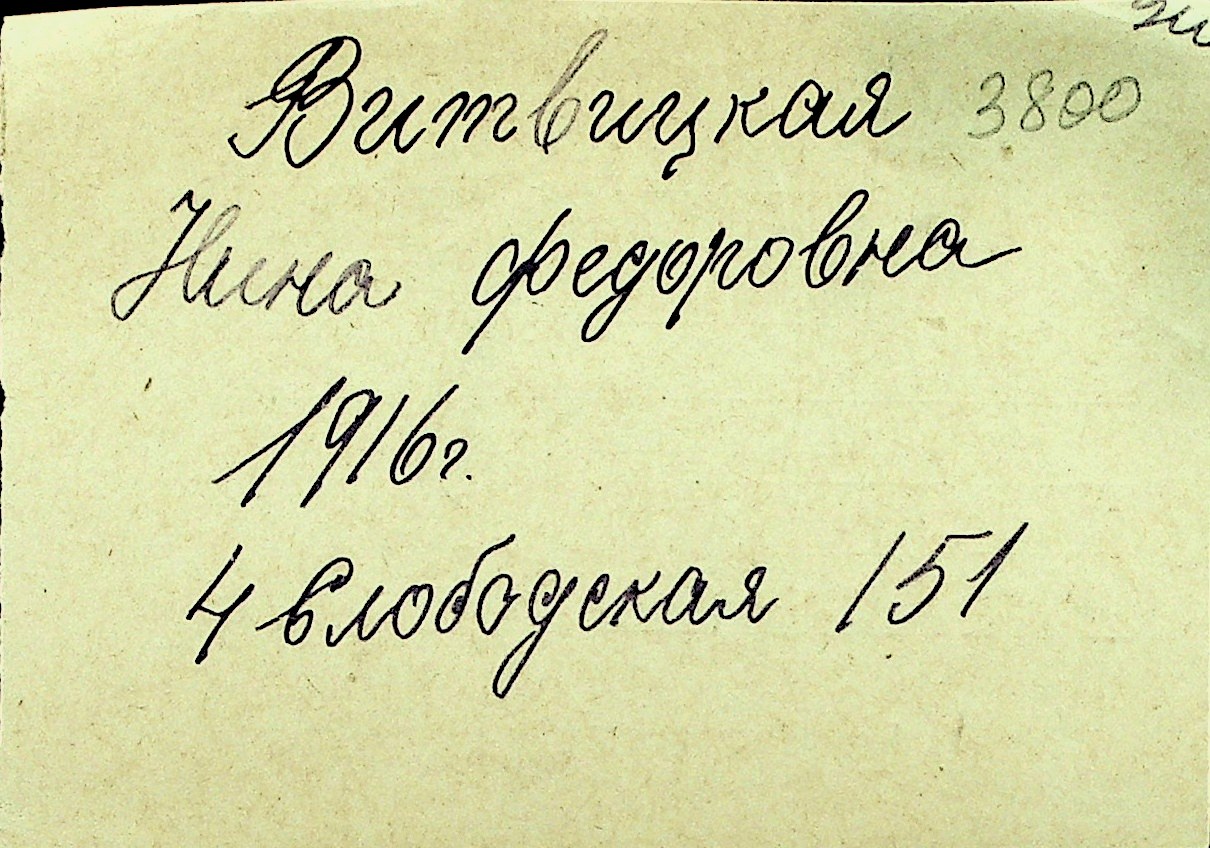 Витвицкая 3800
Нина Федоровна
1916г.
4 Слободская 151